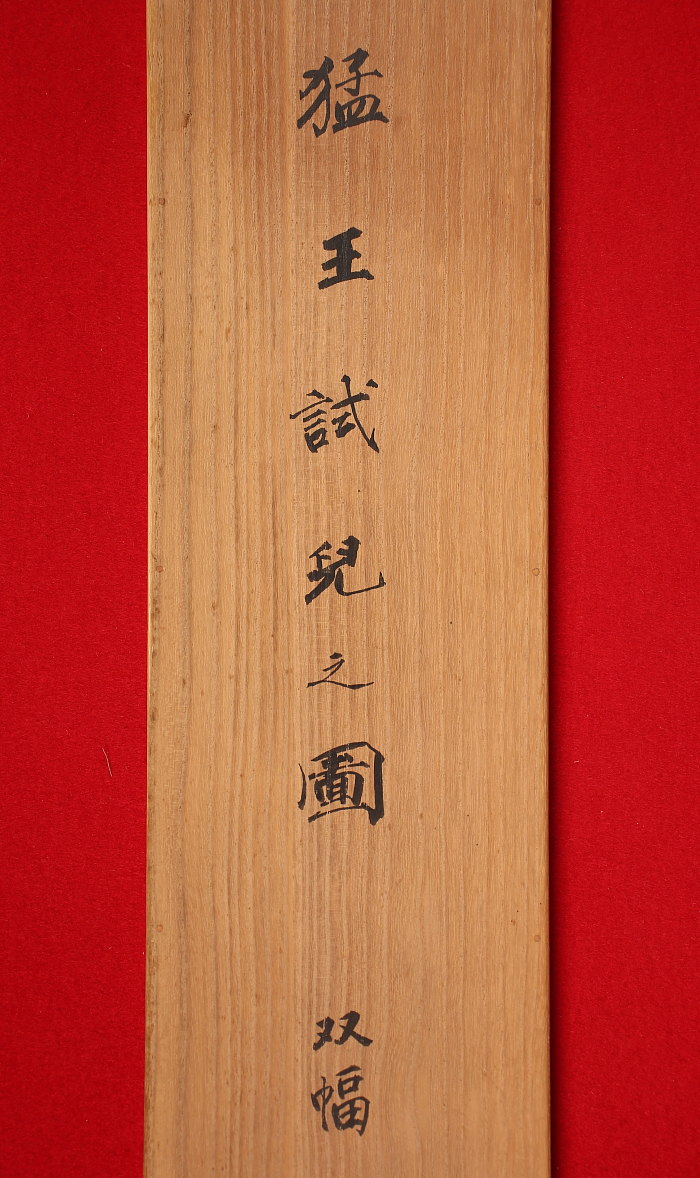 猛王試兒之圖 双幅